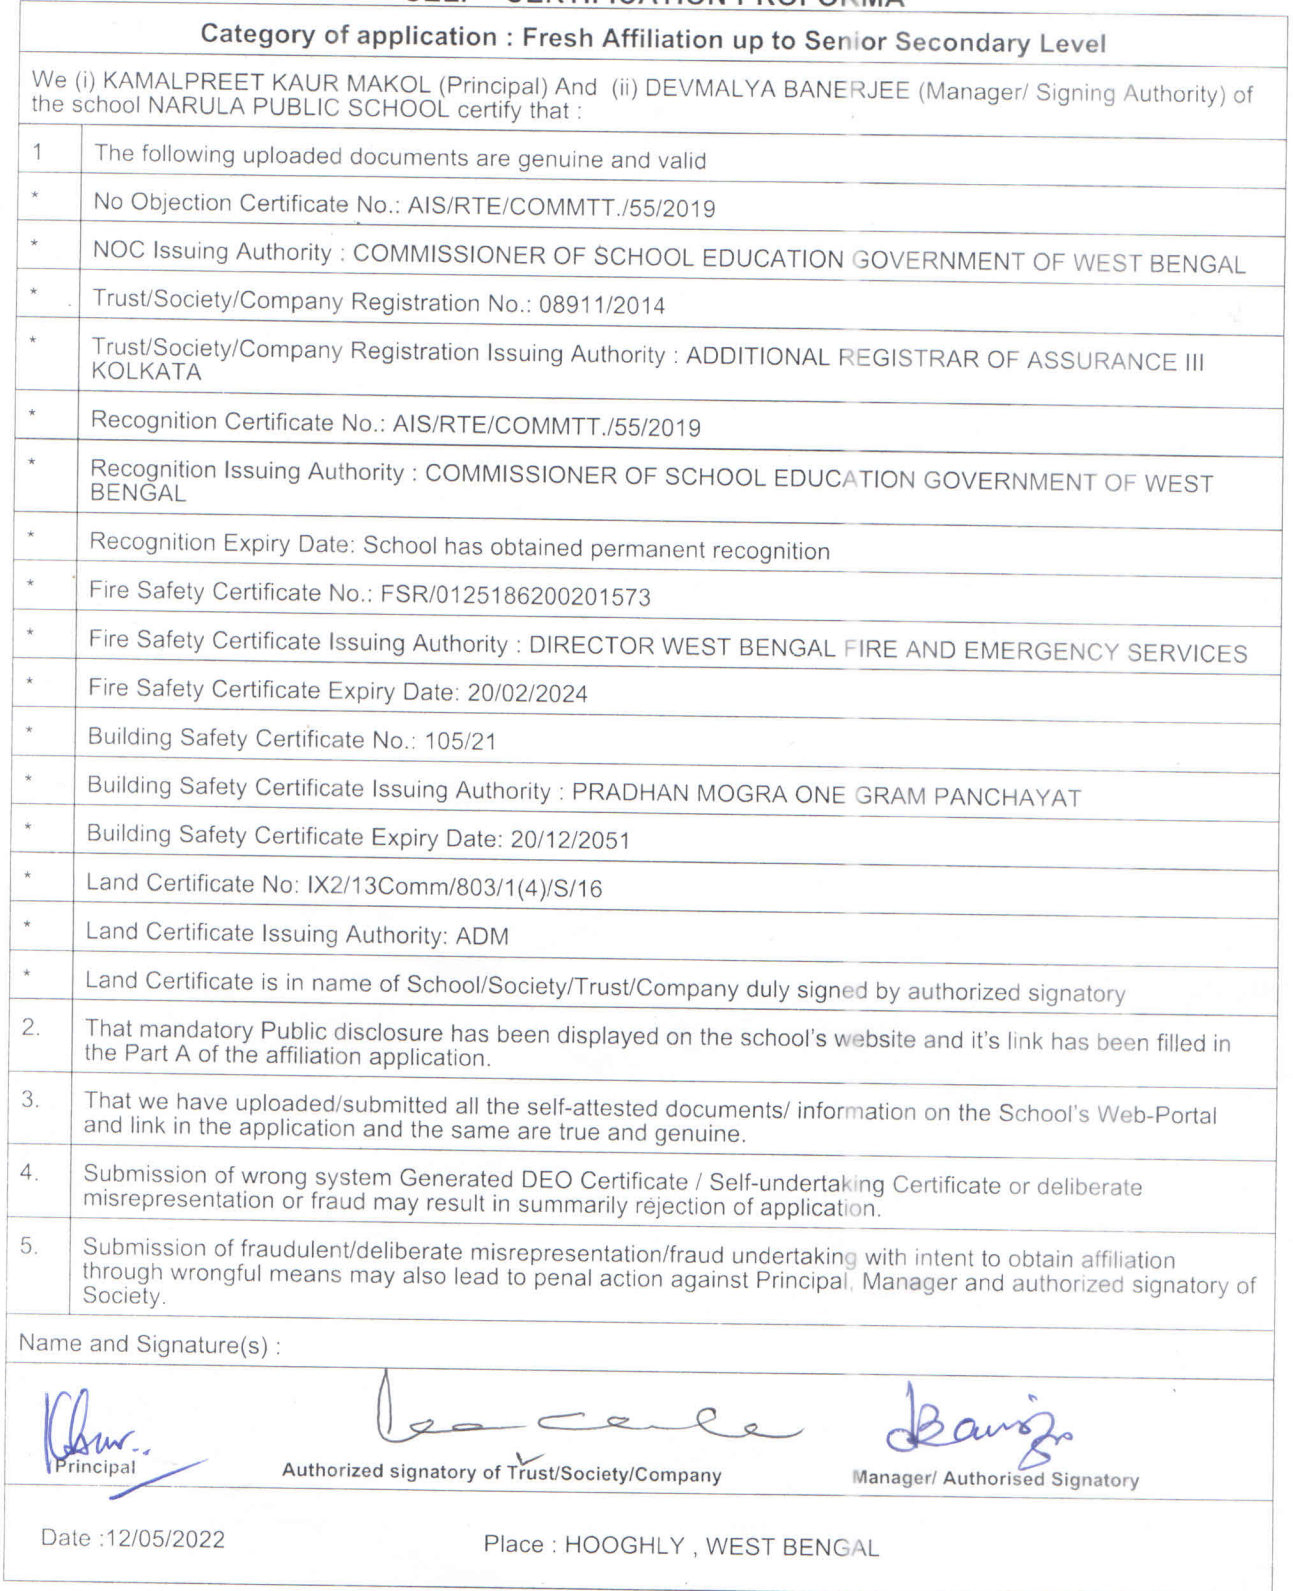 SELF - CERTIFICATION PROFORMA
Category of application : Fresh Affiliation up to Senior Secondary Level
We (i) KAMALPREET KAUR MAKOL (Principal) And (ii) DEVMALYA BANERJEE (Manager/ Signing Authority) of
the school NARULA PUBLIC SCHOOL certify that :
1 The following uploaded documents are genuine and valid
* No Objection Certificate No.: AIS/RTE/COMMTT./55/2019
* NOC Issuing Authority : COMMISSIONER OF SCHOOL EDUCATION GOVERNMENT OF WEST BENGAL
* Trust/Society/Company Registration No.: 08911/2014
* Trust/Society/Company Registration Issuing Authority : ADDITIONAL REGISTRAR OF ASSURANCE III
KOLKATA
* Recognition Certificate No.: AIS/RTE/COMMTT./55/2019
* Recognition Issuing Authority : COMMISSIONER OF SCHOOL EDUCATION GOVERNMENT OF WEST
BENGAL
* Recognition Expiry Date: School has obtained permanent recognition
* Fire Safety Certificate No.: FSR/0125186200201573
* Fire Safety Certificate Issuing Authority : DIRECTOR WEST BENGAL FIRE AND EMERGENCY SERVICES
* Fire Safety Certificate Expiry Date: 20/02/2024
* Building Safety Certificate No.: 105/21
* Building Safety Certificate Issuing Authority : PRADHAN MOGRA ONE GRAM PANCHAYAT
* Building Safety Certificate Expiry Date: 20/12/2051
* Land Certificate No: IX2/13Comm/803/1(4)/S/16
* Land Certificate Issuing Authority: ADM
* Land Certificate is in name of School/Society/Trust/Company duly signed by authorized signatory
2. That mandatory Public disclosure has been displayed on the school's website and it's link has been filled in
the Part A of the affiliation application.
3. That we have uploaded/submitted all the self-attested documents/ information on the School's Web-Portal
and link in the application and the same are true and genuine.
4. Submission of wrong system Generated DEO Certificate / Self-undertaking Certificate or deliberate
misrepresentation or fraud may result in summarily rejection of application.
5. Submission of fraudulent/deliberate misrepresentation/fraud undertaking with intent to obtain affiliation
through wrongful means may also lead to penal action against Principal, Manager and authorized signatory of
Society.
Name and Signature(s) :
Principal
Authorized signatory of Trust/Society/Company
Manager/ Authorised Signatory
Date :12/05/2022
Place : HOOGHLY , WEST BENGAL